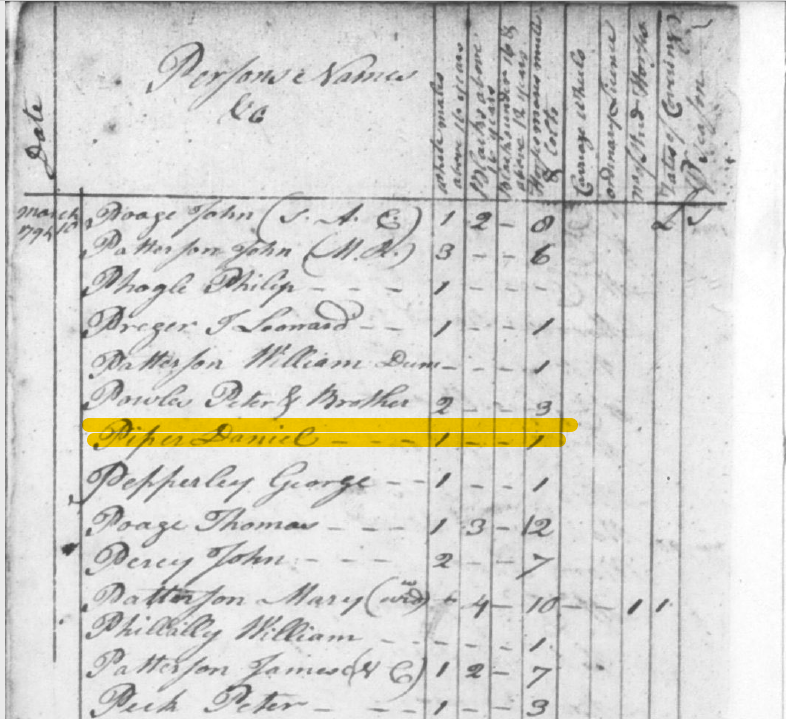 Date
Persons Names
&c
White males above 16 years
Blacks above 16 years
Blacks under 16 & above 12 years
Horses mares mules & Colts
Carriage Wheels
ordinary Licence
Stud Horses
Rates of Covering
Season
March 10
1794
Poage John (S. A. C.) 1 2 - 8 2
Patterson John (M. R.) 3 - - 6
Phogle Philip - - - 1 - - -
Preger J Leonard - - 1 - - 1
Patterson William Dum - - - 1
Powles Peter & Brother 2 - - 3
Piper Daniel - - - 1 - - 1
Pepperley George - - 1 - - 1
Poage Thomas - - - 1 3 - 12
Percy John - - - 2 - - 7
Patterson Mary (wid) - 4 - 10 - - 1 1
Philially William - - - - 1
Patterson James 1 2 - 7
Peck Peter - - - 1 - - 3